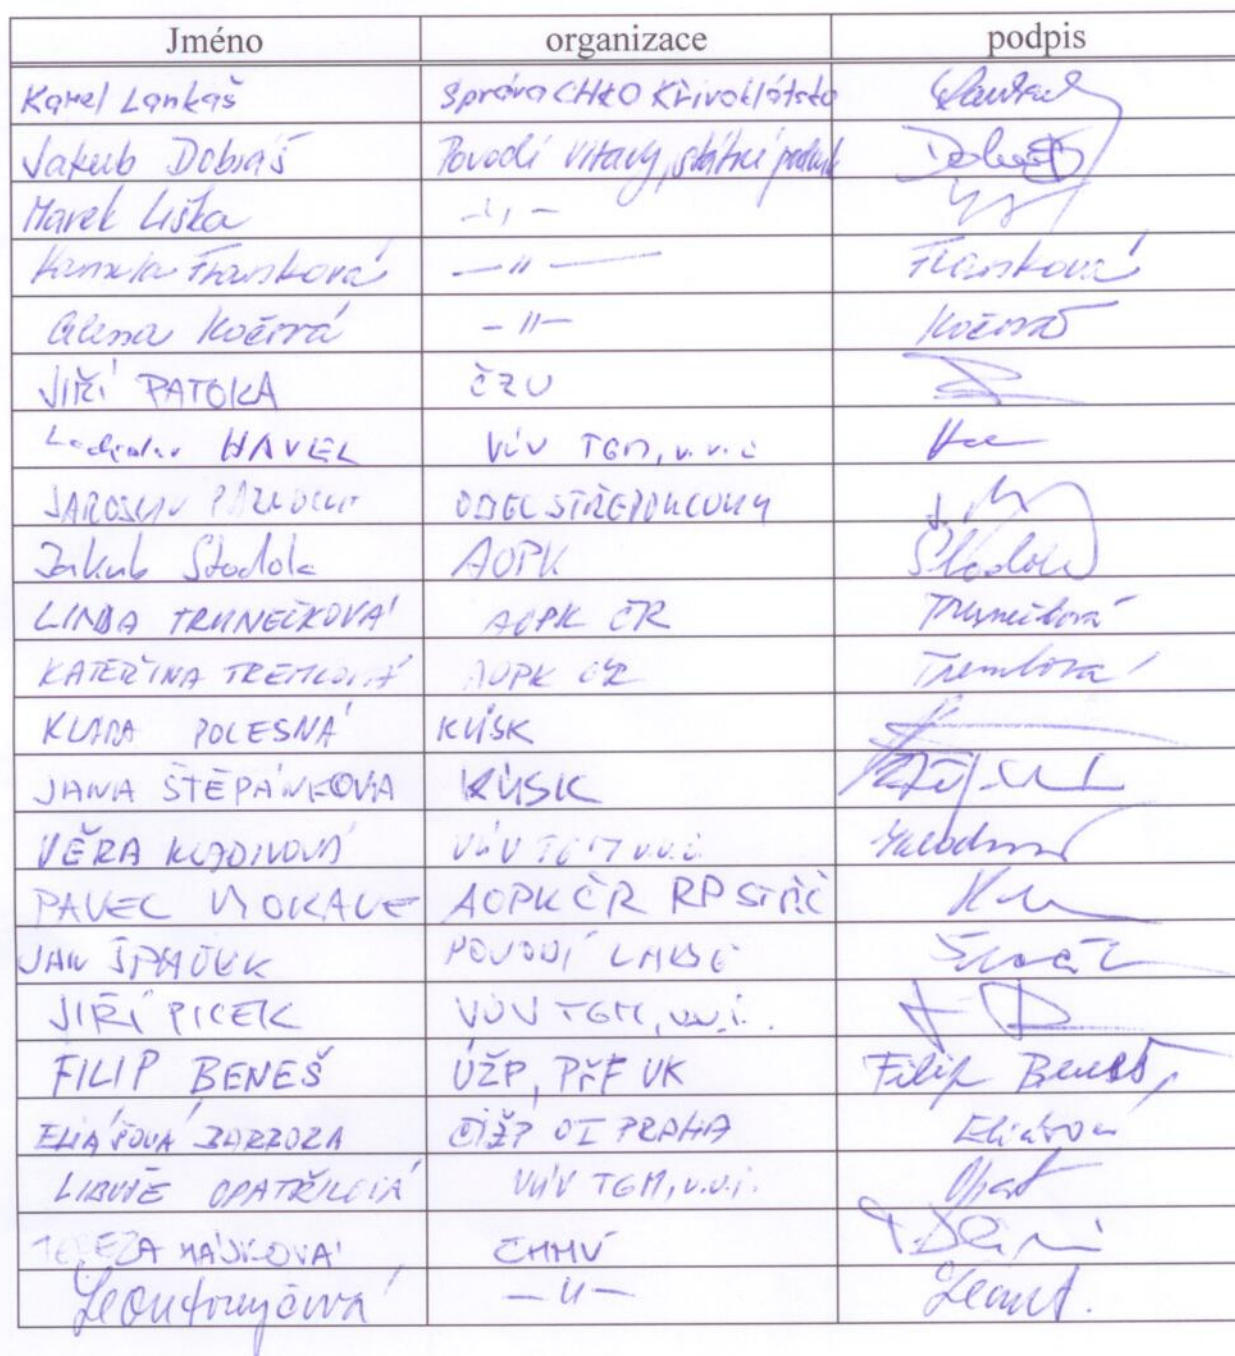 Jméno organizace podpis
Karel Lankaš Správa CHKO Křivoklátsko
Jakub Dobiáš Povodí Vltavy, státní podnik
Marek Liška -"-
Kamila Fransková -"- Fransková
Alena Kočová -"- Kočová
JIŘÍ PATOKA ČZU
Ladislav HAVEL VÚV TGM, v.v.i.
JAROSLAV OBEC
Jakub Stodola AOPK Stodola
LINDA TRUNEČKOVÁ AOPK ČR Trunečková
KATEŘINA TREMLOVÁ AOPK ČR Tremlová
KLÁRA POLESNÁ KÚSK
JANA ŠTĚPÁNKOVÁ KÚSK
VĚRA KLADIVOVÁ VÚV TGM v.v.i.
PAVEL VYORALE AOPK ČR RP
JAN ŠPAČEK POVODÍ LABE
JIŘÍ PICEK VÚV TGM, v.v.i.
FILIP BENEŠ ÚŽP, PřF UK Filip Beneš
ELIÁŠOVÁ BARBORA ČIŽP OI PRAHA Eliášová
LIBUŠE OPATŘILOVÁ VÚV TGM, v.v.i. Opat
TEREZA HÁJKOVÁ ČHMÚ
-"- Leont.